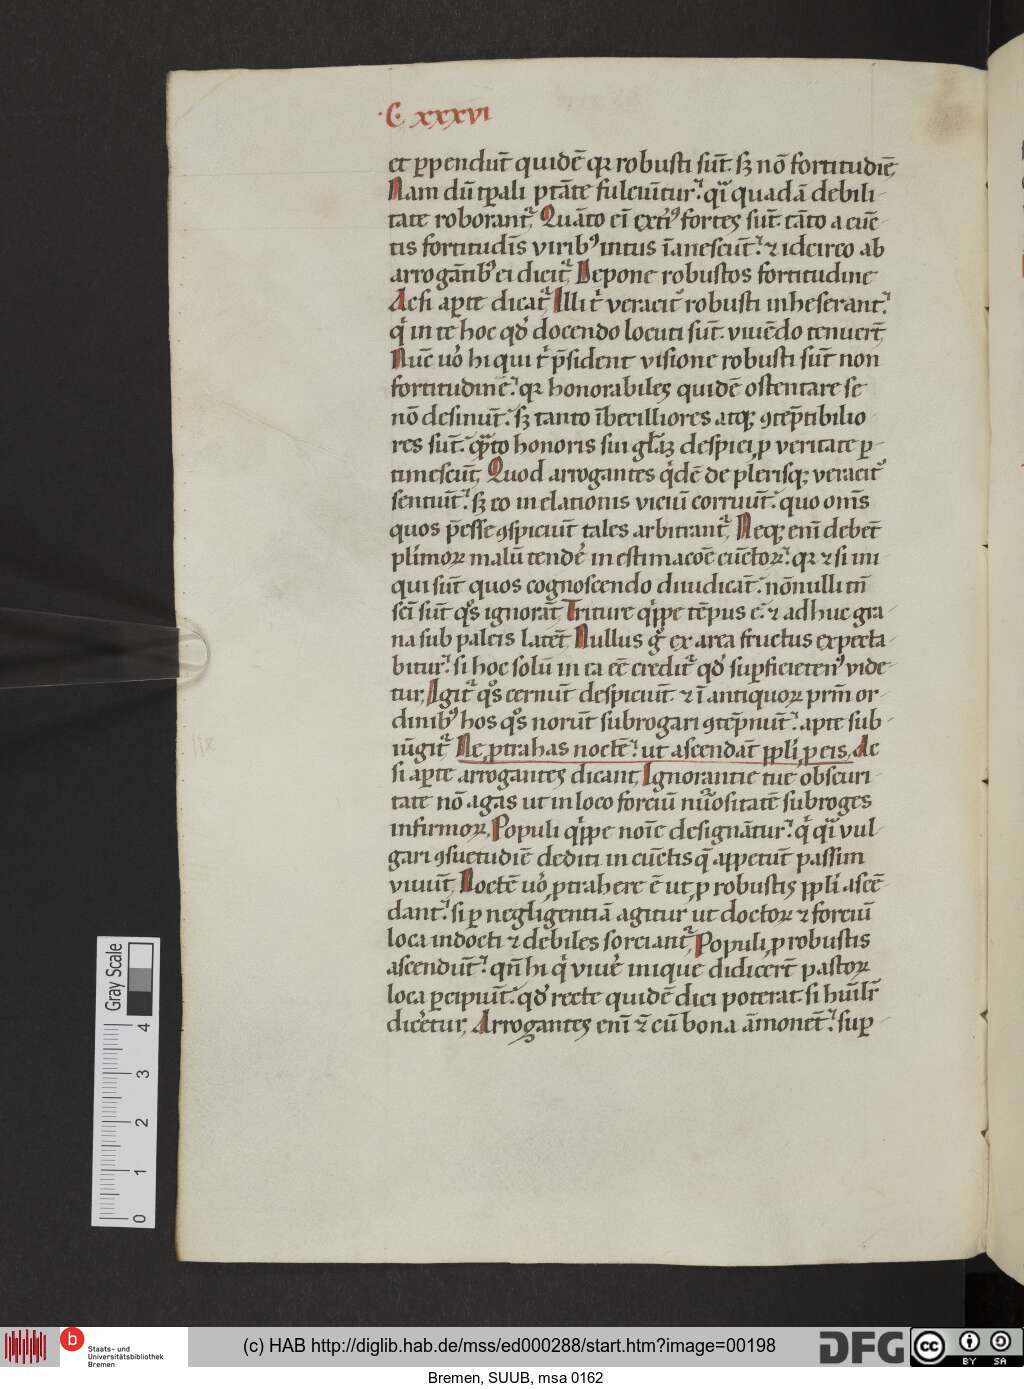 C. xxxvi
et ꝑpendūt quidē qꝛ robusti sūt. sꝫ nō fortitudīe.
Nam dū tꝑali ptāte fulciūtur. qͥ quadā debili-
tate roborantͬ. Quāto eī extiꝰ fortes sūt. tāto a cūc-
tis fortitudīs viribꝰ intus īanescūt. ⁊ idcirco ab
arrogātibꝰ ei dicitͬ. Depone robustos fortitudine
Ac si aꝑte dicatͬ. Illi t̄ veracit̄ robusti inheserant.
qͥ in te hoc qđ docendo locuti sūt. viuēdo tenuert̄.
Nūc uͦo hi qui t̄ p̄sident visione robusti sūt non
fortitudinē. qꝛ honorabiles quidē ostentare se
nō desinūt. sꝫ tanto ībecilliores atqꝫ ꝯtēptibilio
res sūt. qͣto honoris sui despici ꝓ veritate ꝑ-
timescūt. Quod arrogantes qͥdē de plerisqꝫ veracit̄
sentiūt. sꝫ eo in elationis viciū corruūt. quo om̄s
quos p̄esse ꝯspiciūt tales arbitrantͬ. Neqꝫ enī debet̄
plimoꝝ malū tende in estimacoē cūctoꝝ. qꝛ ⁊ si ini
qui sūt quos cognoscendo diiudicāt. nōnulli tn̄
sc̄i sūt qͦs ignorāt. Triture qͥppe tēpus ē. ⁊ adhuc gra
na sub paleis latēt. Nullus gͦ ex area fructus expecta-
bitur. si hoc solū in ea eē creditͬ qđ suꝑficietenꝰ vide-
tur. Agitͬ qͦs cernūt despiciūt. ⁊ ī antiquoꝝ prīm or-
dinibꝰ hos qͦs norūt subrogari ꝯtēpnūt. apte sub-
iūgitͬ Ne ꝓtrahas noctē. ut ascendāt ppli ꝓ eis. Ac
si aꝑte arrogantes dicant. Ignorantie tue obscuri-
tate nō agas ut in loco forciū nūositatē subroges
infirmoꝝ. Populi qͥppe noīe designātur. qͥ qͥ vul-
gari ꝯsuetudīe dediti in cūctis q̄ appetūt passim
viuūt. Noctē uͦo ꝓtrahere ē ut ꝓ robustis ppli ascē-
dant. si ꝑ negligentiā agitur ut doctoꝝ ⁊ forciū
loca indocti ⁊ debiles sorciantͬ. Populi ꝓ robustis
ascendūt. qn̄ hi qͥ viue inique didicert̄ pastoꝝ
loca ꝑcipiūt. qđ recte quidē dici poterat. si hūilr̄
dicetur. Arrogantes enī ⁊ cū bona āmonēt. suꝑ-
Gray Scale
4
3
2
1
0
b
Staats- und
Universitätsbibliothek
Bremen
(c) HAB http://diglib.hab.de/mss/ed000288/start.htm?image=00198
DFG
cc
BY SA
Bremen, SUUB, msa 0162